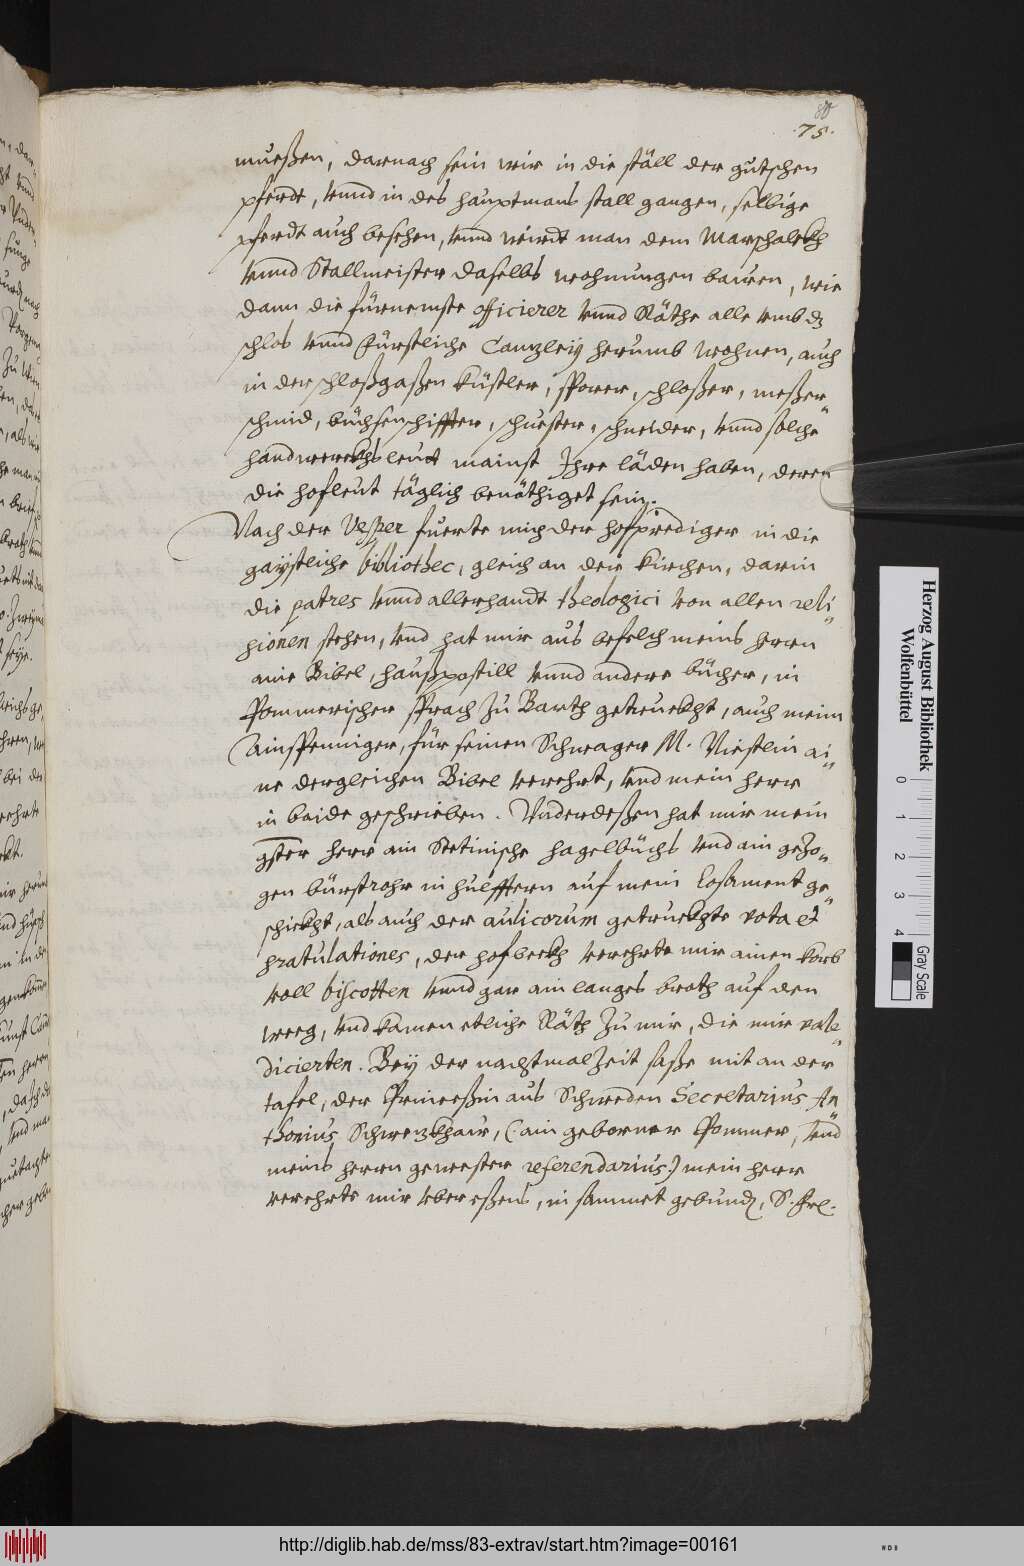 80
.75.
mueßen, darnach sein wir in die ställ der gutschen
pferdt, vnnd in des hauptmans stall gangen, selbige
pferdt auch besehen, vnnd wirdt man dem Marschalckh
vnnd Stallmeister daselbs wohnungen bauen, wie
dann die fürnemste officierer vnnd Räthe alle vmb dz
schlos vnnd fürstliche Canzleiy herumb wohnen, auch
in der schloßgaßen küstler, sporer, schloßer, meßer„
schmid, büchsenschiffter, schuester, schneider, vnnd solche
handwerckhsleut mainst Ihre läden haben, deren
die hofleut täglich benöthiget sein.
Nach der Vesper fuerte mich der hofprediger in die
gaystliche bibliothec, gleich an der kirchen, darin
die patres vnnd allerhandt theologici von allen reli„
gionen stehen, vnd hat mir aus befelch meins herrn
aine Bibel, haußpostill vnnd andere bücher, in
Pommerischer sprach zu Barth getruckht, auch meim
Ainspenniger, für seinen Schwager M. Niestlin ai„
ne dergleichen Bibel verehrt, vnd mein herr
in baide geschrieben. Vnderdeßen hat mir mein
gster herr ain Stetinische hagelbüchs vnd ain gezo„
gen bürstrohr in hulfftern auf mein losament ge„
schickht, als auch der aulicorum getruckhte vota et
gratulationes, der hofbeckh verehrte mir ainen korb
voll biscotten vnnd gar ain langes broth auf den
weeg, vnd kamen etliche Räth zu mir, die mir vale„
dicierten. Bey der nachtmalzeit saße mit an der
tafel, der Princeßin aus Schweden Secretarius An„
thonius Schwenckhaur, (: ain geborner Pommer, vnd
meins herrn gewester referendarius:) mein herr
verehrte mir vber eßens, in sammet gebunden, S. frl.
Herzog August Bibliothek
Wolfenbüttel
0 1 2 3 4
Gray Scale
http://diglib.hab.de/mss/83-extrav/start.htm?image=00161
WDB